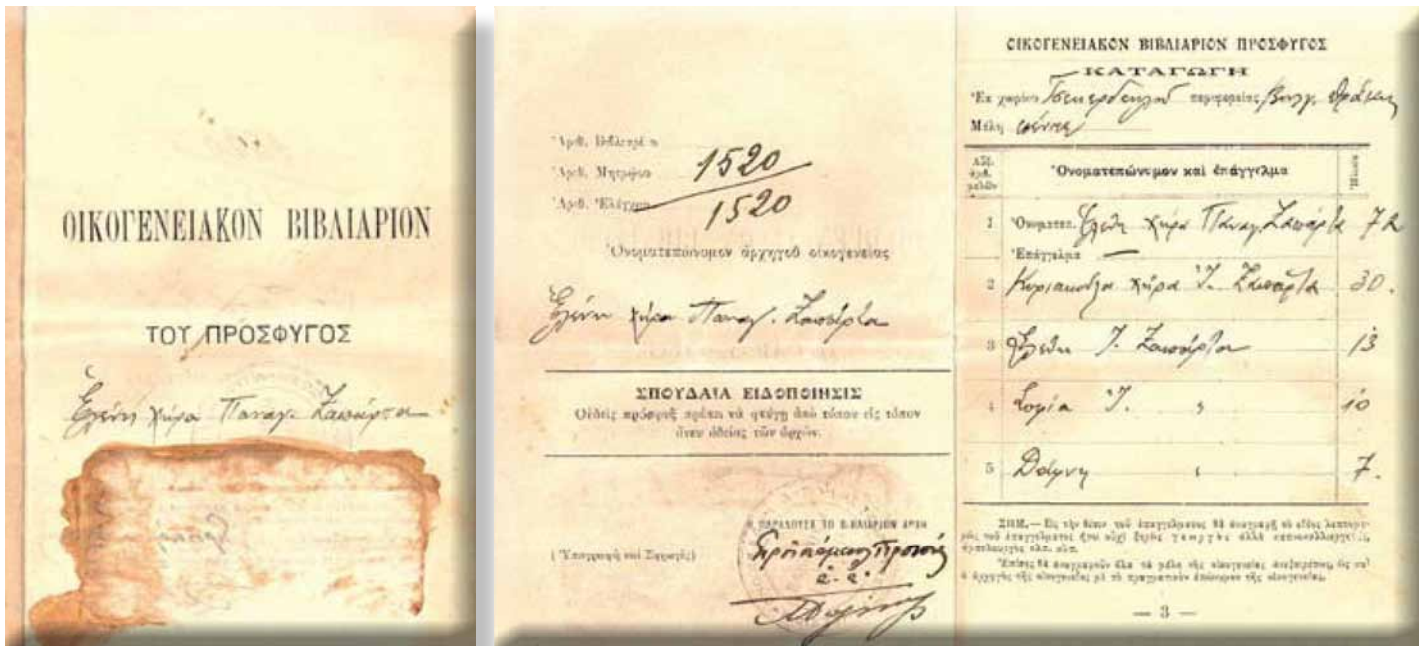 ΟΙΚΟΓΕΝΕΙΑΚΟΝ ΒΙΒΛΙΑΡΙΟΝ
ΤΟΥ ΠΡΟΣΦΥΓΟΣ
Ἑλένη χήρα Παναγ. Ζαπάρτα
Ἀριθ. Μητρῴου 1520
Ἀριθ. Ἐλέγχου 1520
Ὀνοματεπώνυμον ἀρχηγοῦ οἰκογενείας
Ἑλένη χήρα Παναγ. Ζαπάρτα
ΣΠΟΥΔΑΙΑ ΕΙΔΟΠΟΙΗΣΙΣ
Οὐδεὶς πρόσφυξ πρέπει νὰ φεύγῃ ἀπὸ τόπου εἰς τόπον
ἄνευ ἀδείας τῶν ἀρχῶν.
Η ΠΑΡΑΔΟΥΣΑ ΤΟ ΒΙΒΛΙΑΡΙΟΝ ΑΡΧΗ
(Ὑπογραφὴ καὶ Σφραγὶς)
ΟΙΚΟΓΕΝΕΙΑΚΟΝ ΒΙΒΛΙΑΡΙΟΝ ΠΡΟΣΦΥΓΟΣ
ΚΑΤΑΓΩΓΗ
Ἐκ χωρίου περιφερείας Βουλγ. Θράκης
Μέλη πέντε
Αὔξ. ἀριθ. μελῶν Ὀνοματεπώνυμον καὶ ἐπάγγελμα Ἡλικία
1 Ὀνοματεπ. Ἑλένη χήρα Παναγ. Ζαπάρτα 72
Ἐπάγγελμα —
2 Κυριακούλα χήρα Ι. Ζαπάρτα 30.
3 Ἑλένη Ι. Ζαπάρτα 13
4 Σοφία Ι. " 10
5 Δάφνη " 7.
ΣΗΜ.— Εἰς τὴν θέσιν τοῦ ἐπαγγέλματος θὰ ἀναγραφῇ τὸ εἶδος λεπτομε-
ρῶς τοῦ ἐπαγγέλματος ἤτοι οὐχὶ ξηρῶς γεωργὸς ἀλλὰ καπνοκαλλιεργητής,
ἀμπελουργὸς κλπ. κλπ.
Ἐπίσης θὰ ἀναγραφοῦν ὅλα τὰ μέλη τῆς οἰκογενείας ἀνεξαιρέτως, ὡς καὶ
ὁ ἀρχηγὸς τῆς οἰκογενείας μὲ τὸ πραγματικὸν ἐπώνυμον τῆς οἰκογενείας.
— 3 —